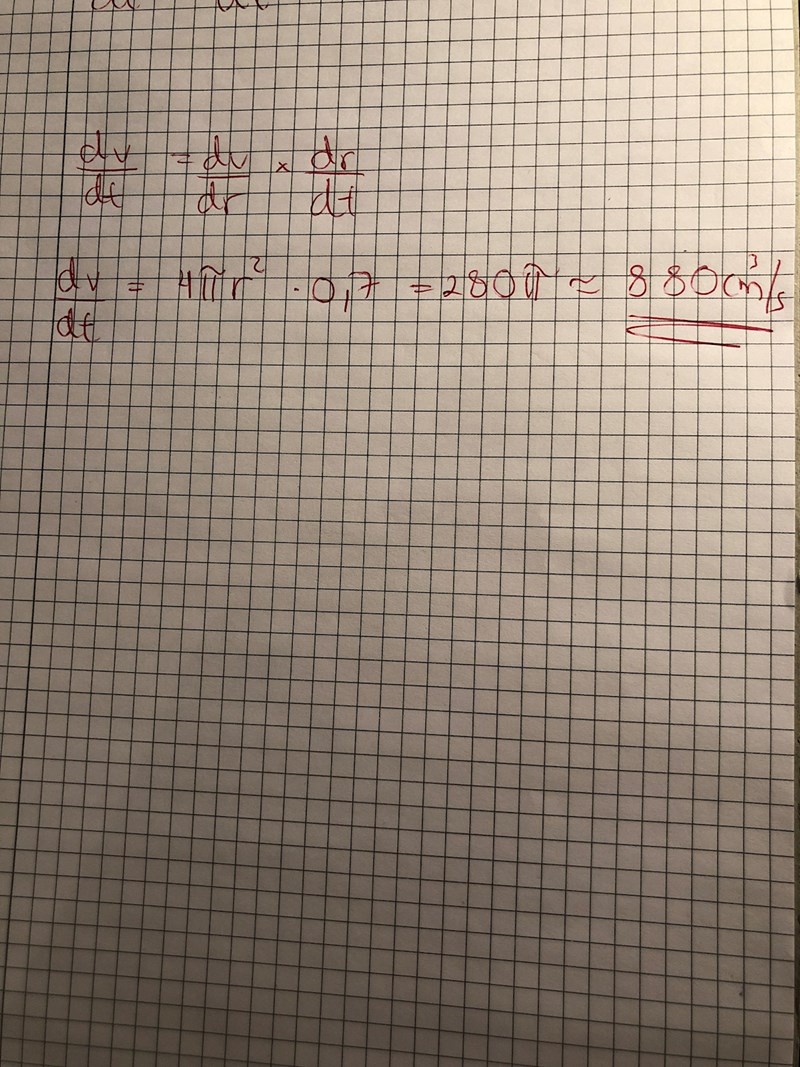 dv/dt = dv/dr × dr/dt
dv/dt = 4πr² · 0,7 = 280π ≈ 880 cm³/s